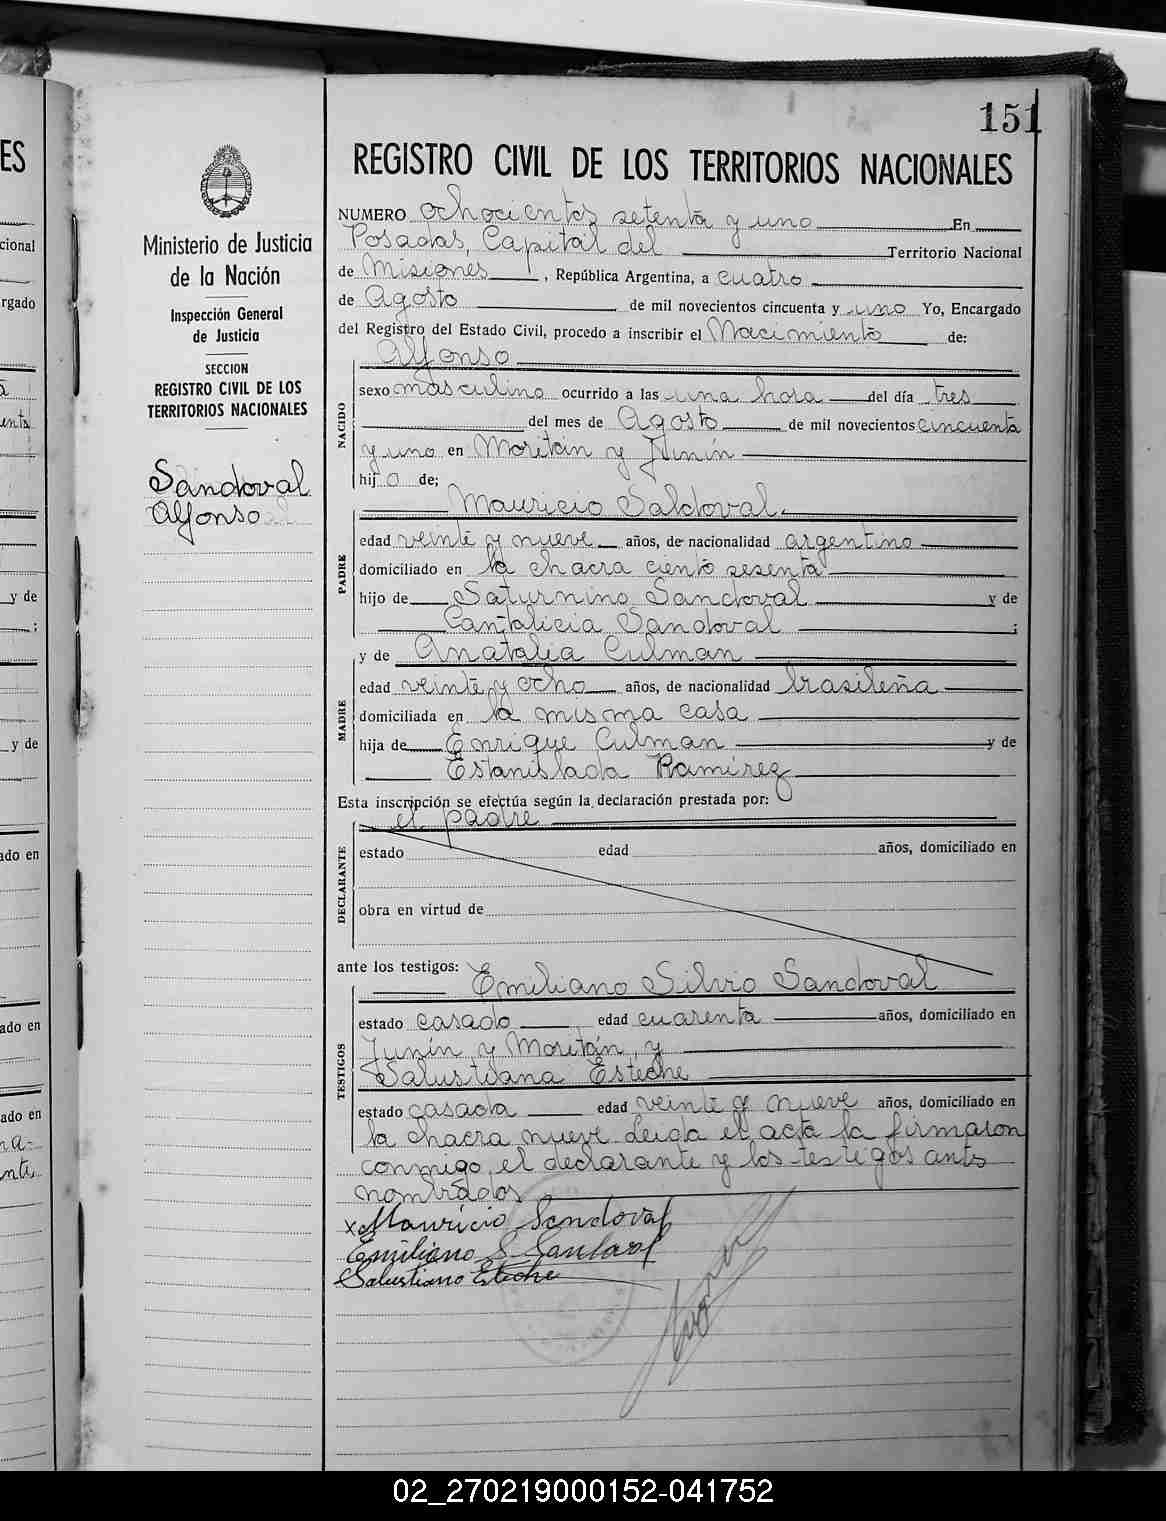 151
REGISTRO CIVIL DE LOS TERRITORIOS NACIONALES
Ministerio de Justicia
de la Nación
Inspección General
de Justicia
SECCION
REGISTRO CIVIL DE LOS
TERRITORIOS NACIONALES
Sandoval
Alfonso
NUMERO ochocientos setenta y uno En
Posadas, Capital del Territorio Nacional
de Misiones, República Argentina, a cuatro
de Agosto de mil novecientos cincuenta y uno Yo, Encargado
del Registro del Estado Civil, procedo a inscribir el Nacimiento de:
Alfonso
NACIDO
sexo masculino ocurrido a las una hora del día tres
del mes de Agosto de mil novecientos cincuenta
y uno en Moritán y Junín
hijo de;
PADRE
Mauricio Saldoval.
edad veinte y nueve años, de nacionalidad argentino
domiciliado en la chacra ciento sesenta
hijo de Saturnino Sandoval y de
Cantalicia Sandoval ;
y de Anatalia Culman
MADRE
edad veinte y ocho años, de nacionalidad brasileña
domiciliada en la misma casa
hija de Enrique Culman y de
Estanislada Ramírez
Esta inscripción se efectúa según la declaración prestada por:
el padre
DECLARANTE
estado edad años, domiciliado en
obra en virtud de
ante los testigos:
Emiliano Silvio Sandoval
TESTIGOS
estado casado edad cuarenta años, domiciliado en
Junín y Moritán, y
Salustiana Esteche
estado casada edad veinte y nueve años, domiciliado en
la chacra nueve. Leída el acta la firmaron
conmigo, el declarante y los testigos ants
nombrados
x Mauricio Sandoval
Emiliano S. Sandoval
Salustiano Esteche
ES
cional
rgado
y de
;
y de
ado en
ado en
ado en
02_270219000152-041752